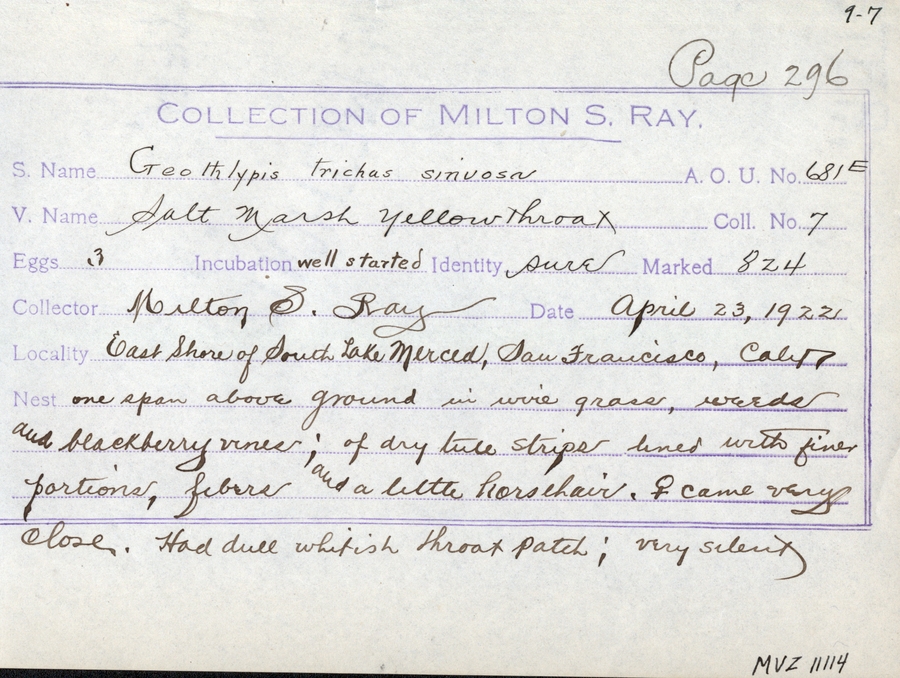 9-7
Page 296
COLLECTION OF MILTON S. RAY.
S. Name Geothlypis trichas sinuosa A. O. U. No. 681E
V. Name Salt Marsh Yellowthroat Coll. No. 7
Eggs 3 Incubation well started Identity sure Marked 824
Collector Milton S. Ray Date April 23, 1922
Locality East Shore of South Lake Merced, San Francisco, Calif
Nest one span above ground in wire grass, weeds
and blackberry vines; of dry tule strips lined with finer
portions, fibers and a little horsehair. ♀ came very
close. Had dull whitish throat patch; very silent
MVZ 11114